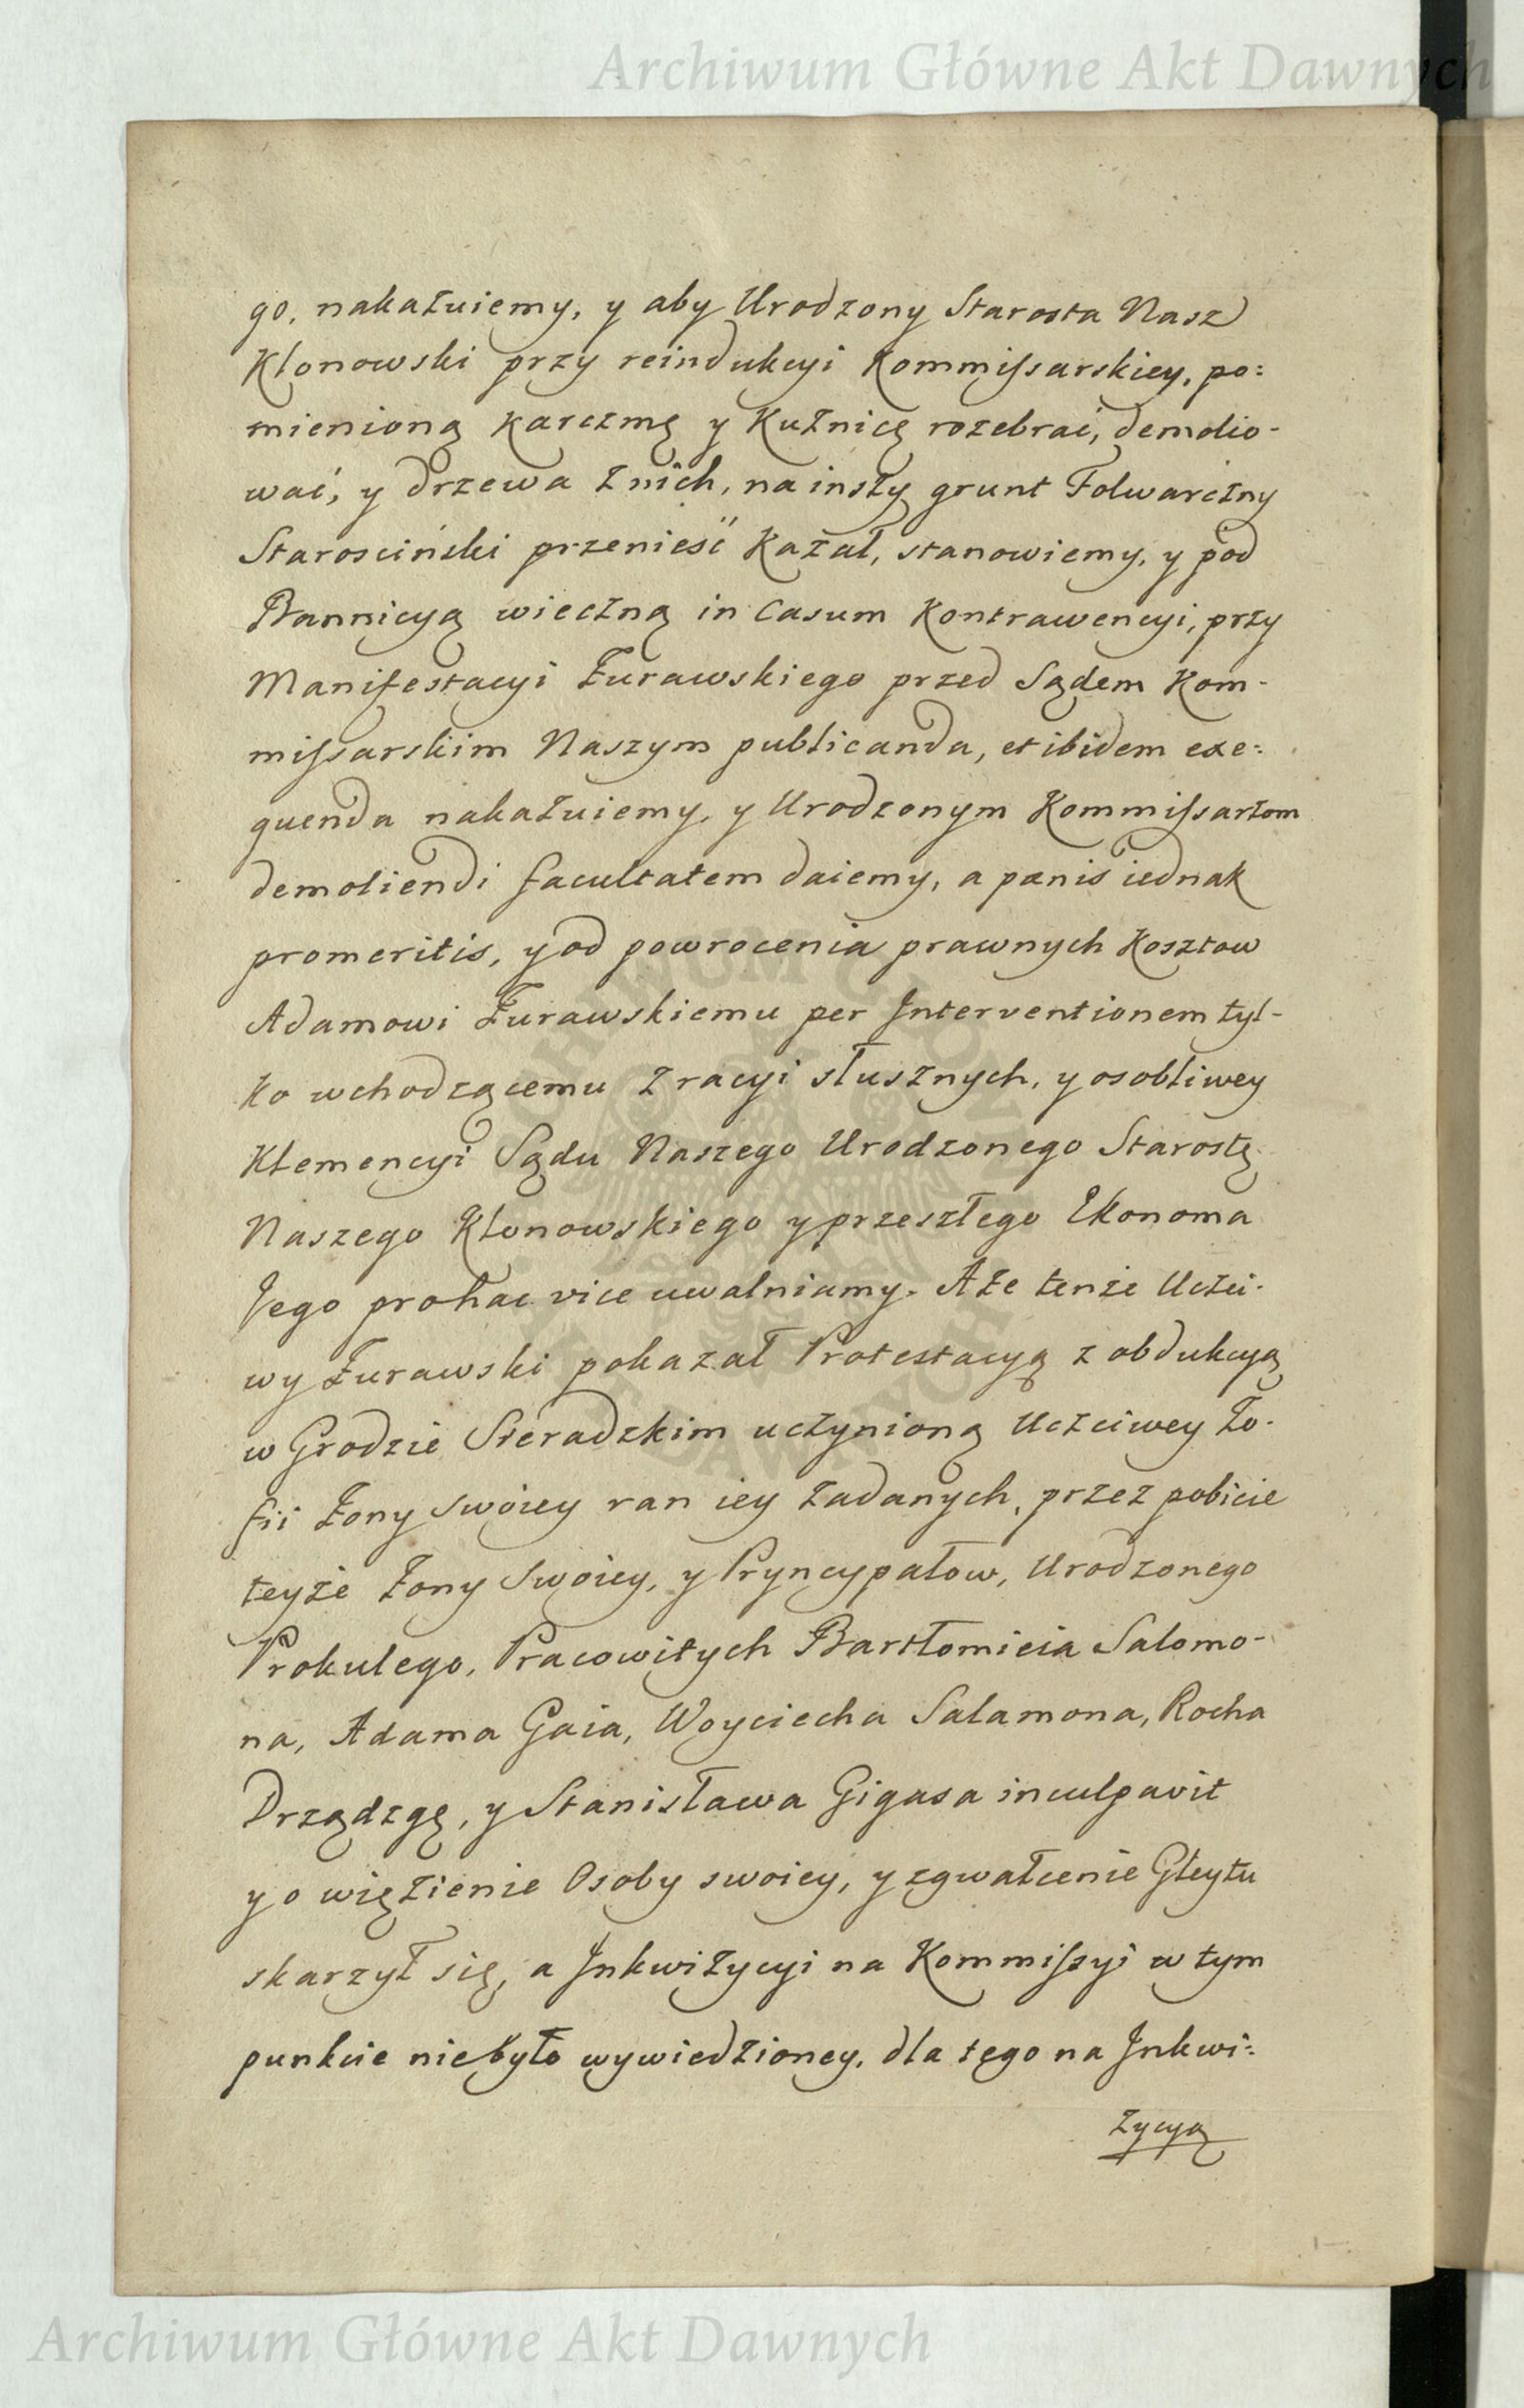 Archiwum Główne Akt Dawnych
go, nakażuiemy, y aby Urodzony Starosta Nasz
Klonowski przy reindukcyi Kommiſsarskiey, po:
mienioną Karczmę y Kuźnicę rozebrać, demolio-
wać, y drzewa z nich, na inszy grunt Folwarczny
Starosciński przenieść Kazał, stanowiemy, y pod
Bannicyą wieczną in Casum Kontrawencyi, przy
Manifestacyi Żurawskiego przed Sądem Kom-
miſsarskim Naszym publicanda, et ibidem exe:
quenda nakażuiemy, y Urodzonym Kommiſsarzom
demoliendi facultatem daiemy, a pænis iednak
promeritis, y od powrocenia prawnych Kosztow
Adamowi Żurawskiemu per Interventionem tyl-
ko wchodzącemu z racyi słusznych, y osobliwey
Klemencyi Sądu Naszego Urodzonego Starostę
Naszego Klonowskiego y przeszłego Ekonoma
Jego pro hac vice uwalniamy. A że tenże Uczci-
wy Żurawski pokazał Protestacyą z obdukcyą
w Grodzie Sieradzkim uczynioną Uczciwey Zo-
fii Żony Swoiey ran iey zadanych, przez pobicie
teyże Żony Swoiey, y Pryncypałow, Urodzonego
Prokulego, Pracowitych Bartłomieia Salomo-
na, Adama Gaia, Woyciecha Salamona, Rocha
Drządzgę, y Stanisława Gigasa inculpavit
y o więzienie Osoby swoiey, y zgwałcenie Gleytu
skarzył się, a Inkwizycyi na Kommiſsyi w tym
punkcie niebyło wywiedzioney, dla tego na Inkwi:
zycyą
Archiwum Główne Akt Dawnych